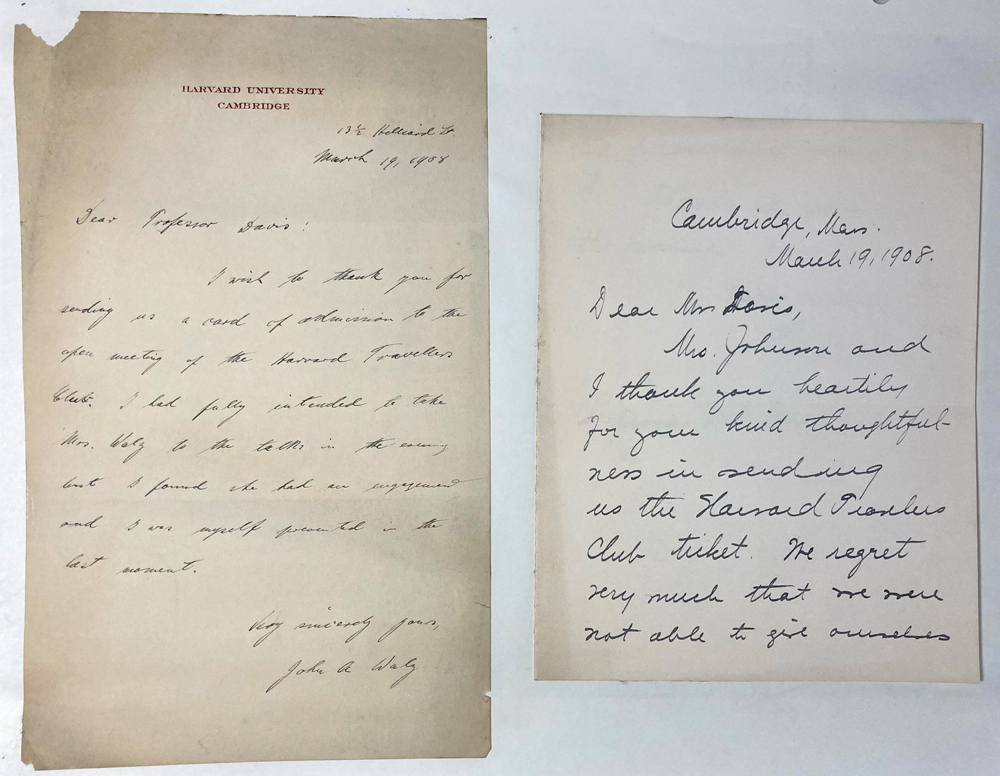 HARVARD UNIVERSITY
CAMBRIDGE
13½ Hilliard St.
March 19, 1908
Dear Professor Davis:
I wish to thank you for
sending us a card of admission to the
open meeting of the Harvard Travellers
Club. I had fully intended to take
Mrs. Walz to the talks in the evening
but I found she had an engagement
and I was myself prevented in the
last moment.
Very sincerely yours,
John A Walz
Cambridge, Mass.
March 19, 1908.
Dear Mr Davis,
Mrs. Johnson and
I thank you heartily
for your kind thoughtful-
ness in sending
us the Harvard Travelers
Club ticket. We regret
very much that we were
not able to give ourselves